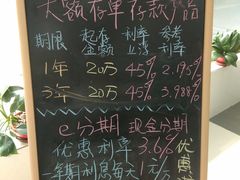 大额存单存款产品
期限 起存金额 利率上浮 参考利率
1年 20万 45% 2.175%
3年 20万 45% 3.988%
e分期 现金分期
优惠利率 3.6%
一年期利息每天1元/
优惠